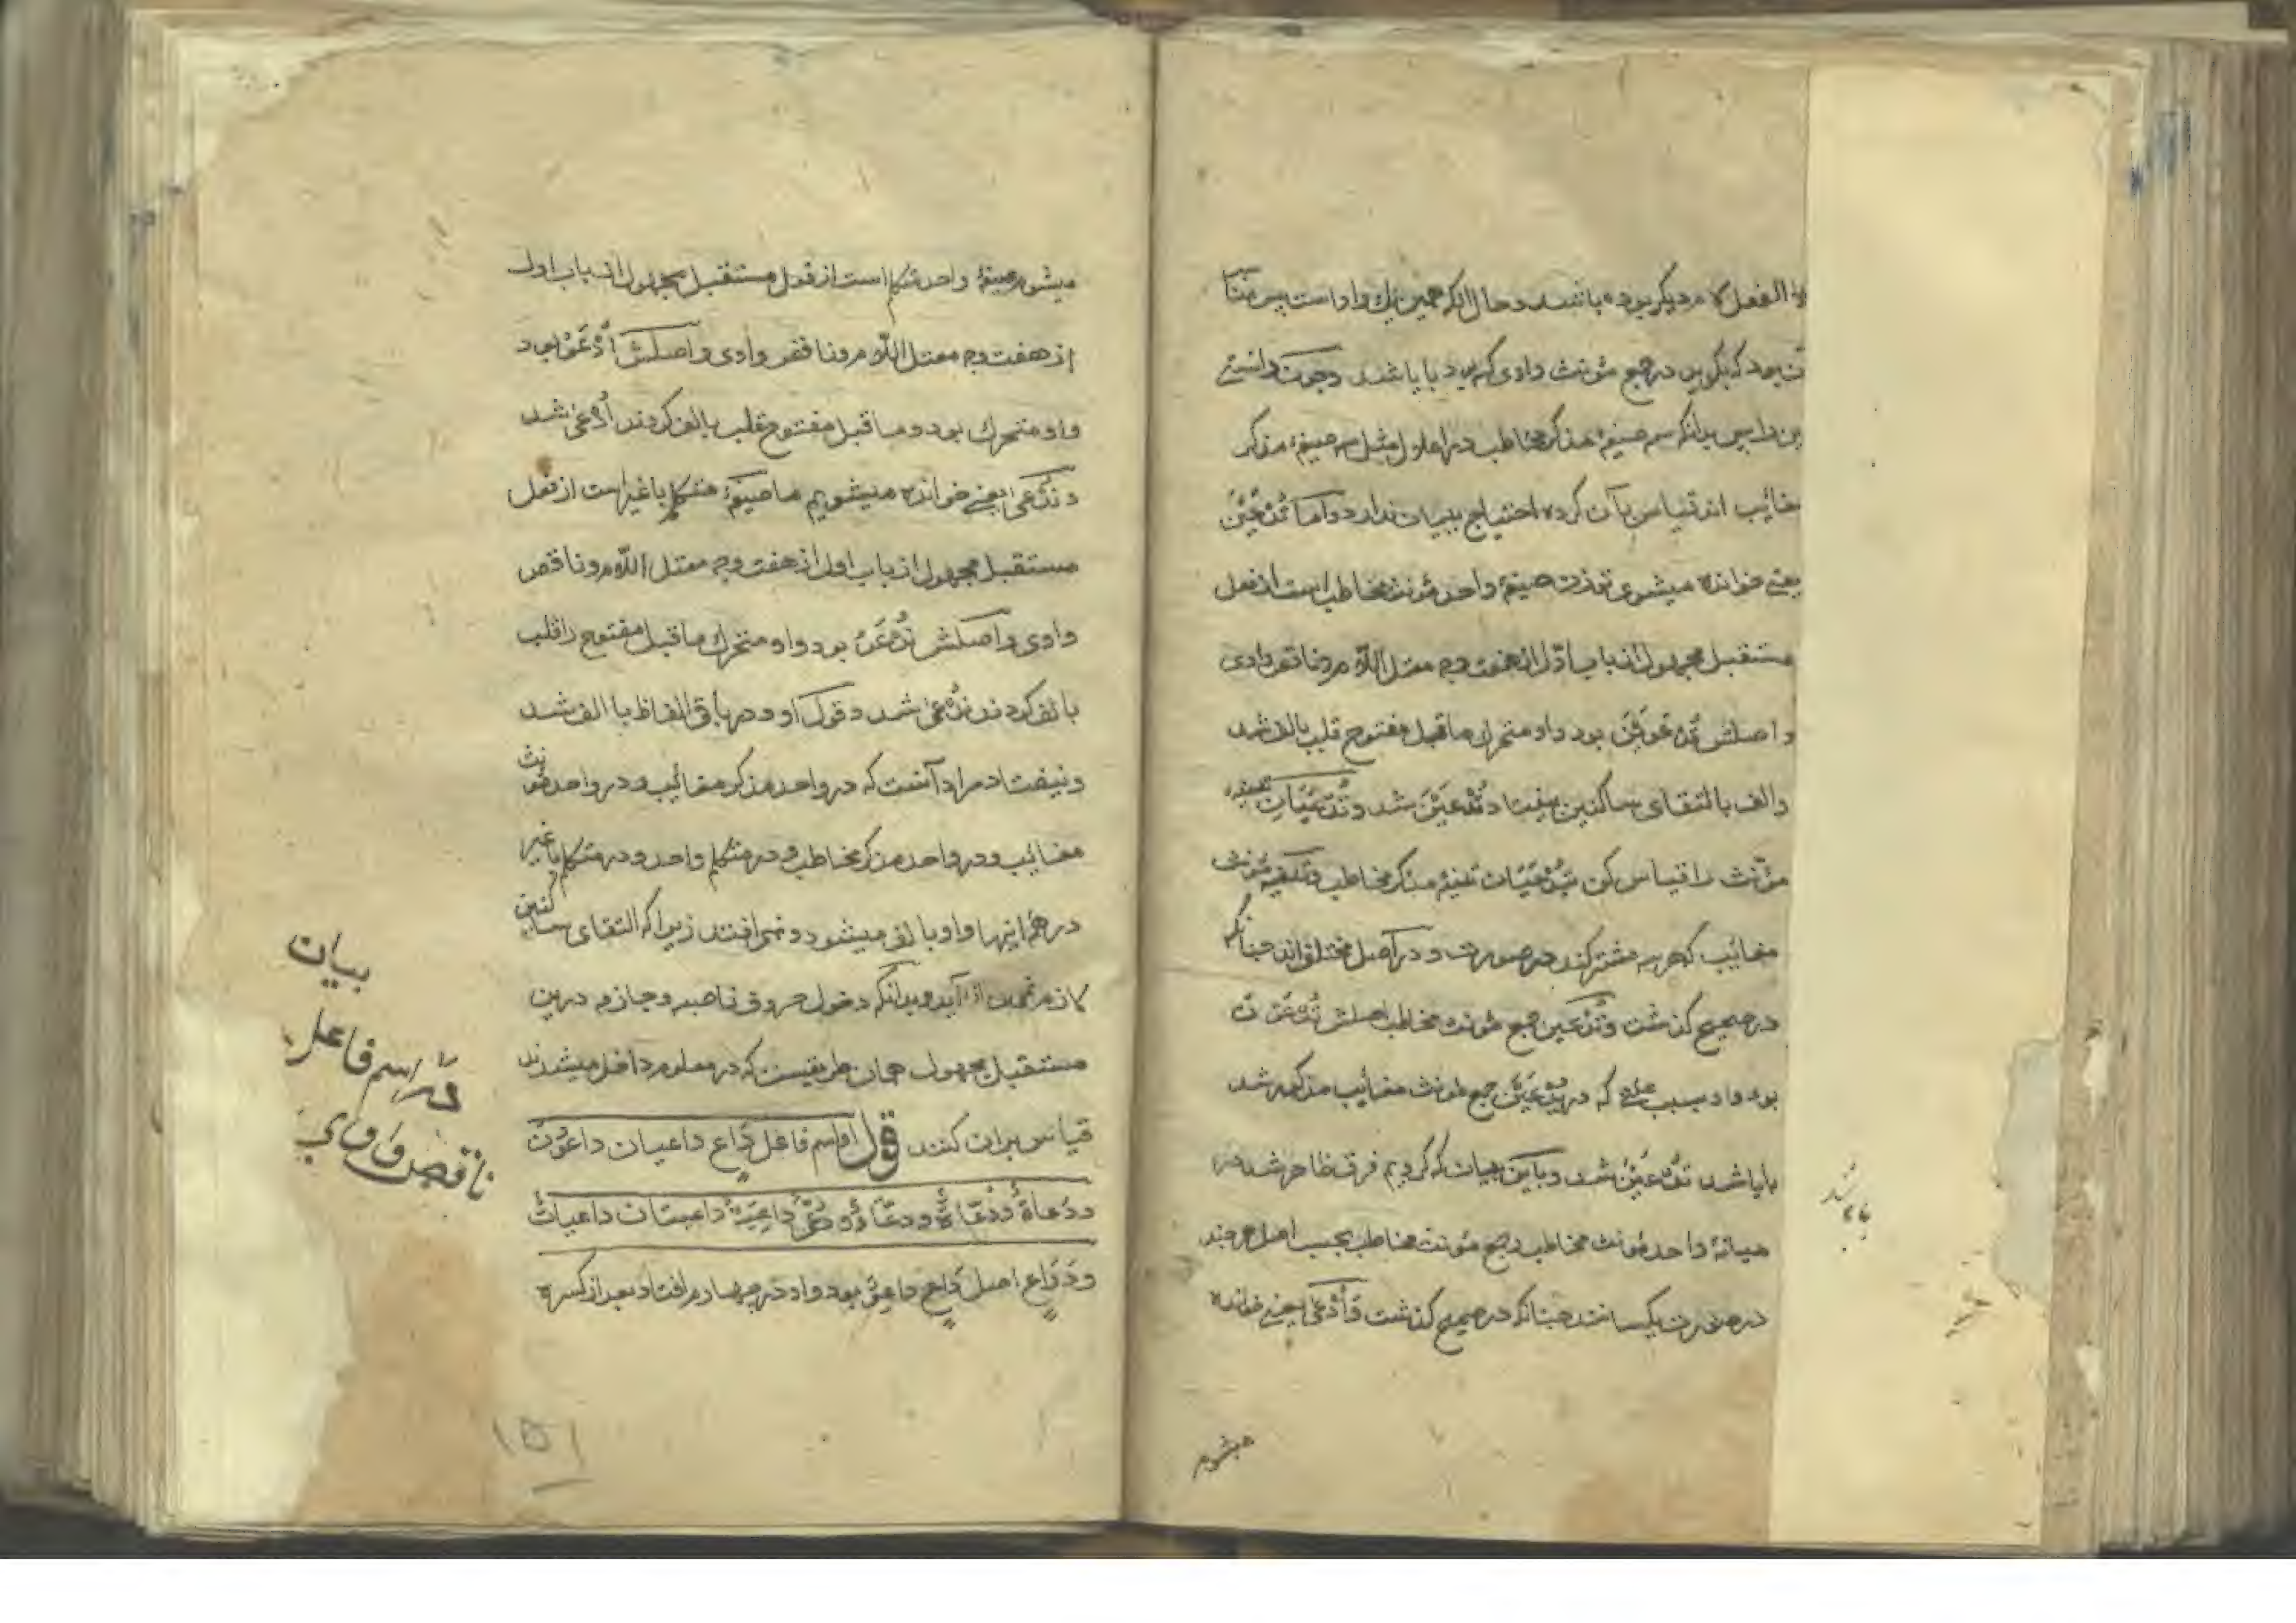 الفعل لام دیگر بوده باشد و حال آنکه همین یک واو است پس
بود که بگویی در جمع مؤنث واوی که بود یا باشد و چون دانستی
این را پس بدانکه سه صیغهٔ مذکر مخاطب در اعلال مثل سه صیغهٔ مذکر
مغایب اند قیاس بآن کرده احتیاج ببیان ندارد و اما تُدْعَیْنَ
یعنی خوانده میشوی تو زن صیغهٔ واحد مؤنث مخاطب است از فعل
مستقبل مجهول از باب اوّل از هفت وجه معتل اللّام و ناقص وادی
و اصلش تُدْعَوِیْنَ بود واو متحرک ماقبل مفتوح قلب بالف شد
و الف بالتقای ساکنین بیفتاد تُدْعَیْنَ شد و تُدْعَیَانِ تثنیهٔ
مؤنث را قیاس کن بتُدْعَیَانِ تثنیهٔ مذکر مخاطب و تثنیهٔ مؤنث
مغایب که هر سه مشترکند در صورت و در اصل مختلف اند چنانکه
در صحیح گذشت و تُدْعَیْنَ جمع مؤنث مخاطب اصلش تُدْعَوْنَ
بود واو بسبب علتی که در یُدْعَیْنَ جمع مؤنث مغایب مذکور شد
با یا شد تُدْعَیْنَ شد و باین بیان که کردیم فرق ظاهر شد در
میانهٔ واحد مؤنث مخاطب و جمع مؤنث مخاطب بحسب اصل هر چند
در صورت یکسانند چنانکه در صحیح گذشت و اُدْعَی یعنی خوانده
میشوم
میشوم صیغهٔ واحد متکلم است از فعل مستقبل مجهول از باب اول
از هفت وجه معتل اللّام و ناقص وادی و اصلش اُدْعَوُ بود
واو متحرک بود و ماقبل مفتوح قلب بالف کردند اُدْعَی شد
و نُدْعَی یعنی خوانده میشویم ما صیغهٔ متکلم با غیر است از فعل
مستقبل مجهول از باب اول از هفت وجه معتل اللّام و ناقص
وادی و اصلش نُدْعَوُ بود واو متحرک ماقبل مفتوح را قلب
بالف کردند نُدْعَی شد و قول او و در باقی الفاظ با الف شد
و نیفتاد مراد آنست که در واحد مذکر مغایب و در واحد مؤنث
مغایب و در واحد مذکر مخاطب و در متکلم واحد و در متکلم با غیر
در همهٔ اینها واو با الف میشود و نمی افتد زیرا که التقای ساکنین
لازم نمی آید و بدانکه دخول حروف ناصبه و جازمه درین
مستقبل مجهول همان طریقیست که در معلوم داخل میشدند
قیاس بران کنند قول او اسم فاعل دَاعٍ داعیان داعُونَ
و دُعاةٌ و دُعَّاءٌ و دُعًّی داعِیَةٌ داعیتان داعیاتٌ
و دَوَاعٍ اصل دَاعٍ داعِوٌ بود واو در چهارم افتاد بعد از کسره
بیان
در اسم فاعل
ناقص واوی
۱۵۱